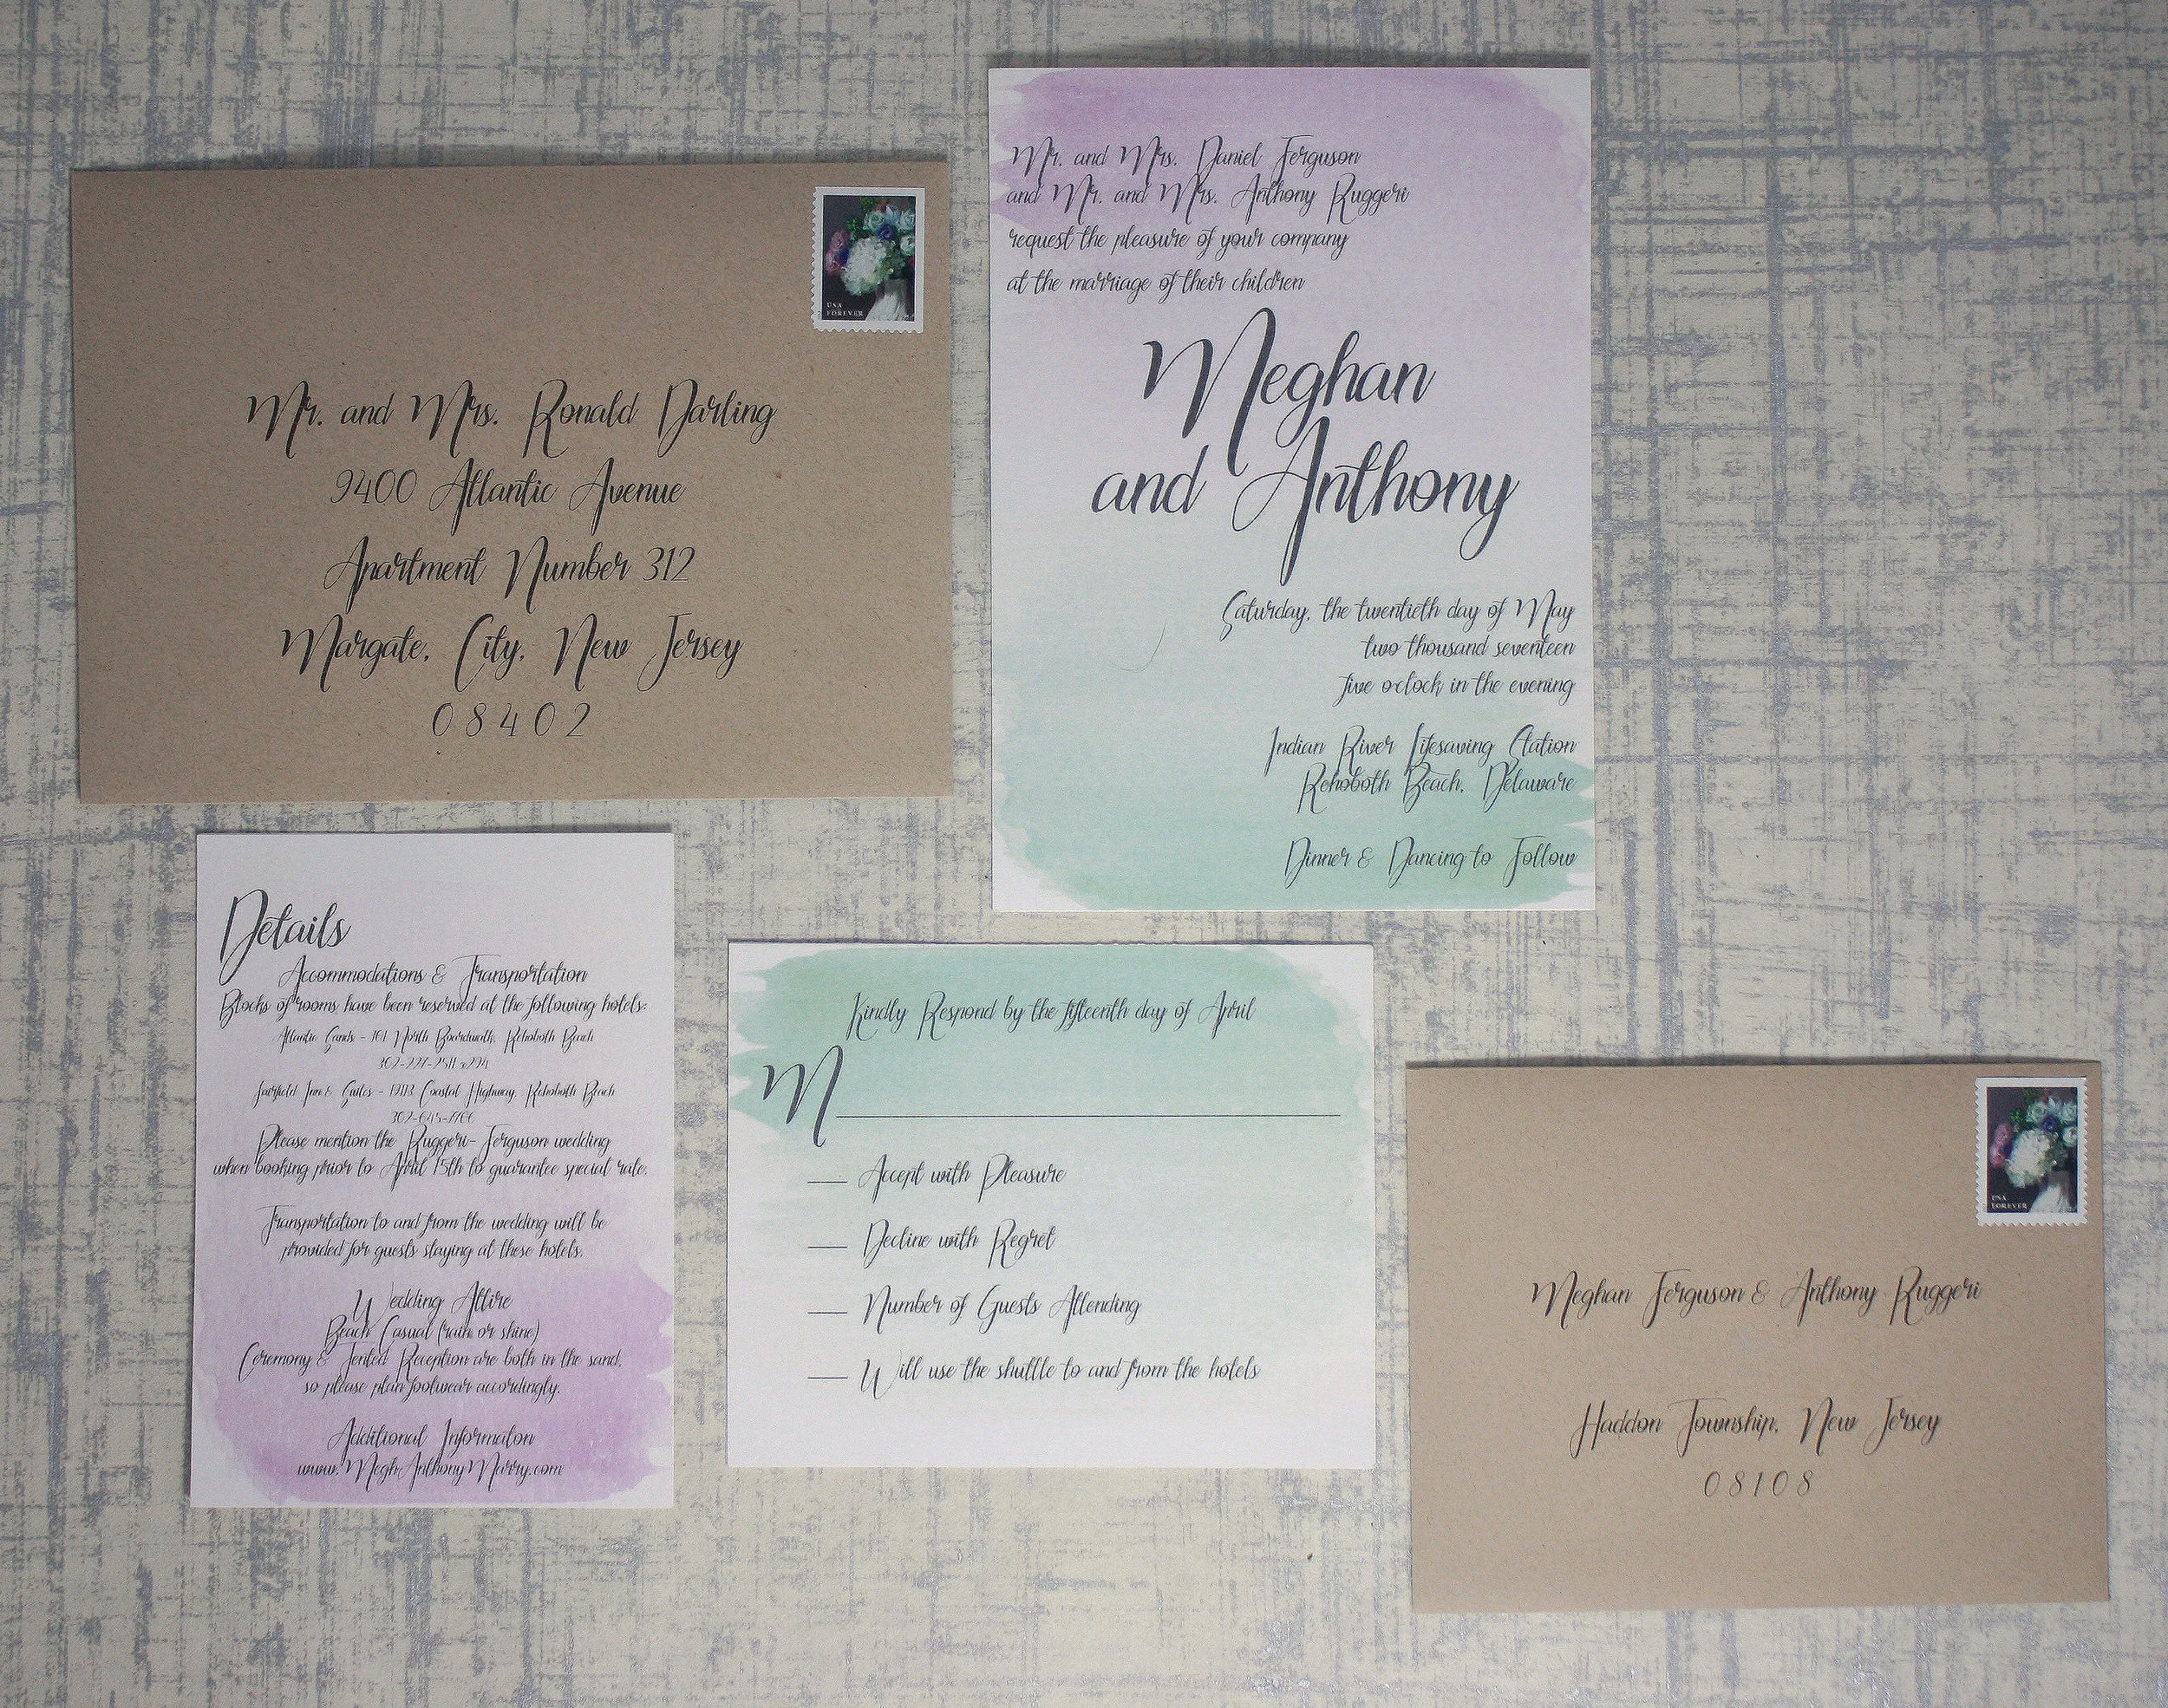 USA
FOREVER
Mr. and Mrs. Ronald Darling
9400 Atlantic Avenue
Apartment Number 312
Margate, City, New Jersey
08402
Mr. and Mrs. Daniel Ferguson
and Mr. and Mrs. Anthony Ruggeri
request the pleasure of your company
at the marriage of their children
Meghan
and Anthony
Saturday, the twentieth day of May
two thousand seventeen
five o'clock in the evening
Indian River Lifesaving Station
Rehoboth Beach, Delaware
Dinner & Dancing to Follow
Details
Accommodations & Transportation
Blocks of rooms have been reserved at the following hotels:
Atlantic Sands - 101 North Boardwalk, Rehoboth Beach
Fairfield Inn & Suites - Coastal Highway, Rehoboth Beach
Please mention the Ruggeri-Ferguson wedding
when booking prior to April 15th to guarantee special rate.
Transportation to and from the wedding will be
provided for guests staying at these hotels.
Wedding Attire
Beach Casual (rain or shine)
Ceremony & Tented Reception are both in the sand,
so please plan footwear accordingly.
Additional Informaton
www.MeghAnthonyMarry.com
Kindly Respond by the fifteenth day of April
M
Accept with Pleasure
Decline with Regret
Number of Guests Attending
Will use the shuttle to and from the hotels
USA
FOREVER
Meghan Ferguson & Anthony Ruggeri
Haddon Township, New Jersey
08108